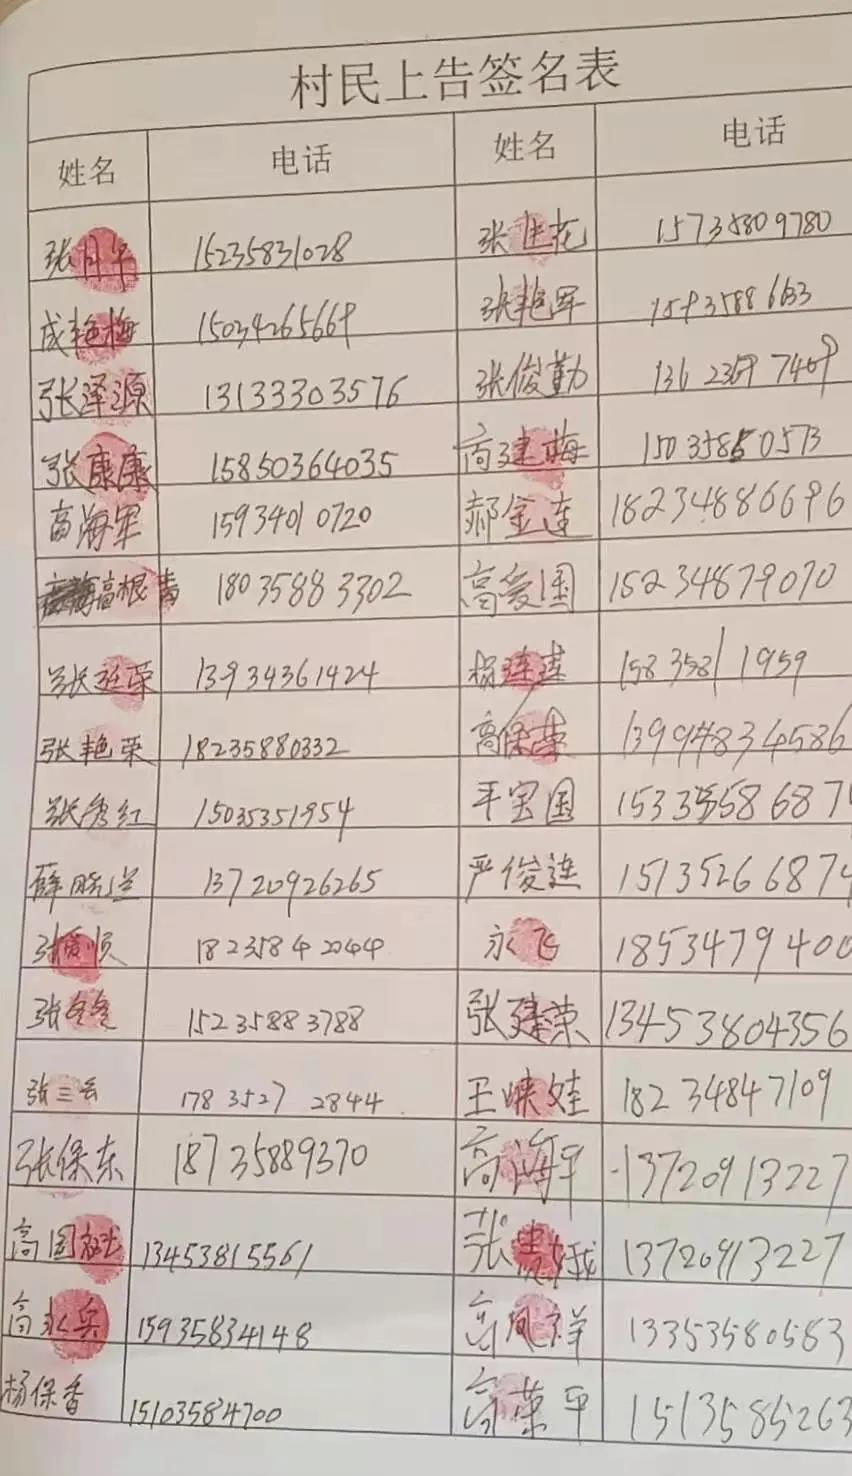 村民上告签名表
姓名 电话 姓名 电话
张月平 15235831028 张佳花 15735809780
成艳梅 15034265669 张艳军
张泽源 13133303576 张俊勤 13623697469
张康康 15850364035 高建梅
高海军 15934010720 郝金连 18234886696
高根青 18035883302 高爱国 15234879070
张廷荣 13934361424 杨连连 15835811959
张艳荣 18235880332 高保荣 13994834586
张秀红 15035351954 平宝国
薛晓兰 13720926265 严俊连 1513526687
张爱顺 18235842044 永飞 1853479400
张冬冬 15235883788 张建荣 13453804356
张三云 17835272844 王峡娃 18234847109
张保东 18735889370 高海平 13720913227
高国斌 13453815561 张 娥 13720913227
高永兵 15935834148 高凤祥 13353580583
杨保香 15103584700 高荣平 1513585263